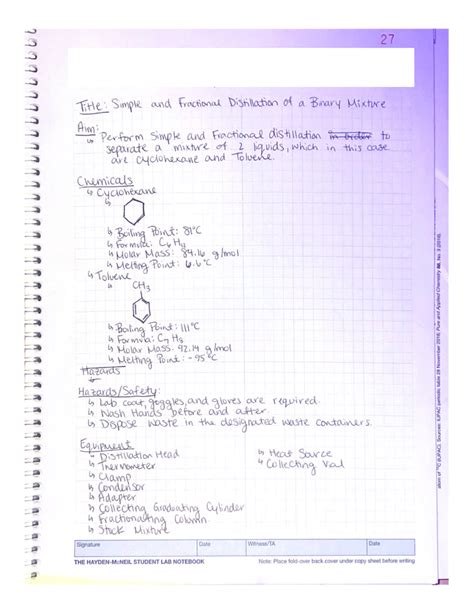 27
Title: Simple and Fractional Distillation of a Binary Mixture
Aim:
↳ Perform Simple and Fractional distillation in order to
separate a mixture of 2 liquids, which in this case
are cyclohexane and Toluene.
Chemicals
↳ Cyclohexane
↳ Boiling Point: 81°C
↳ Formula: C6 H12
↳ Molar Mass: 84.16 g/mol
↳ Melting Point: 6.6°C
↳ Toluene
↳ CH3
↳ Boiling Point: 111°C
↳ Formula: C7 H8
↳ Molar Mass: 92.14 g/mol
↳ Melting Point: -95°C
Hazards
Hazards/Safety:
↳ Lab coat, goggles, and gloves are required.
↳ Wash Hands before and after.
↳ Dispose waste in the designated waste containers.
Equipment
↳ Distillation Head
↳ Thermometer
↳ Clamp
↳ Condensor
↳ Adapter
↳ Collecting Graduating Cylinder
↳ Fractionditing Column
↳ Stock Mixture
↳ Heat Source
↳ Collecting Vial
Signature Date Witness/TA Date
THE HAYDEN-McNEIL STUDENT LAB NOTEBOOK Note: Place fold-over back cover under copy sheet before writing
atom of 12C (IUPAC). Sources: IUPAC periodic table 28 November 2016; Pure and Applied Chemistry 88, No. 3 (2016).